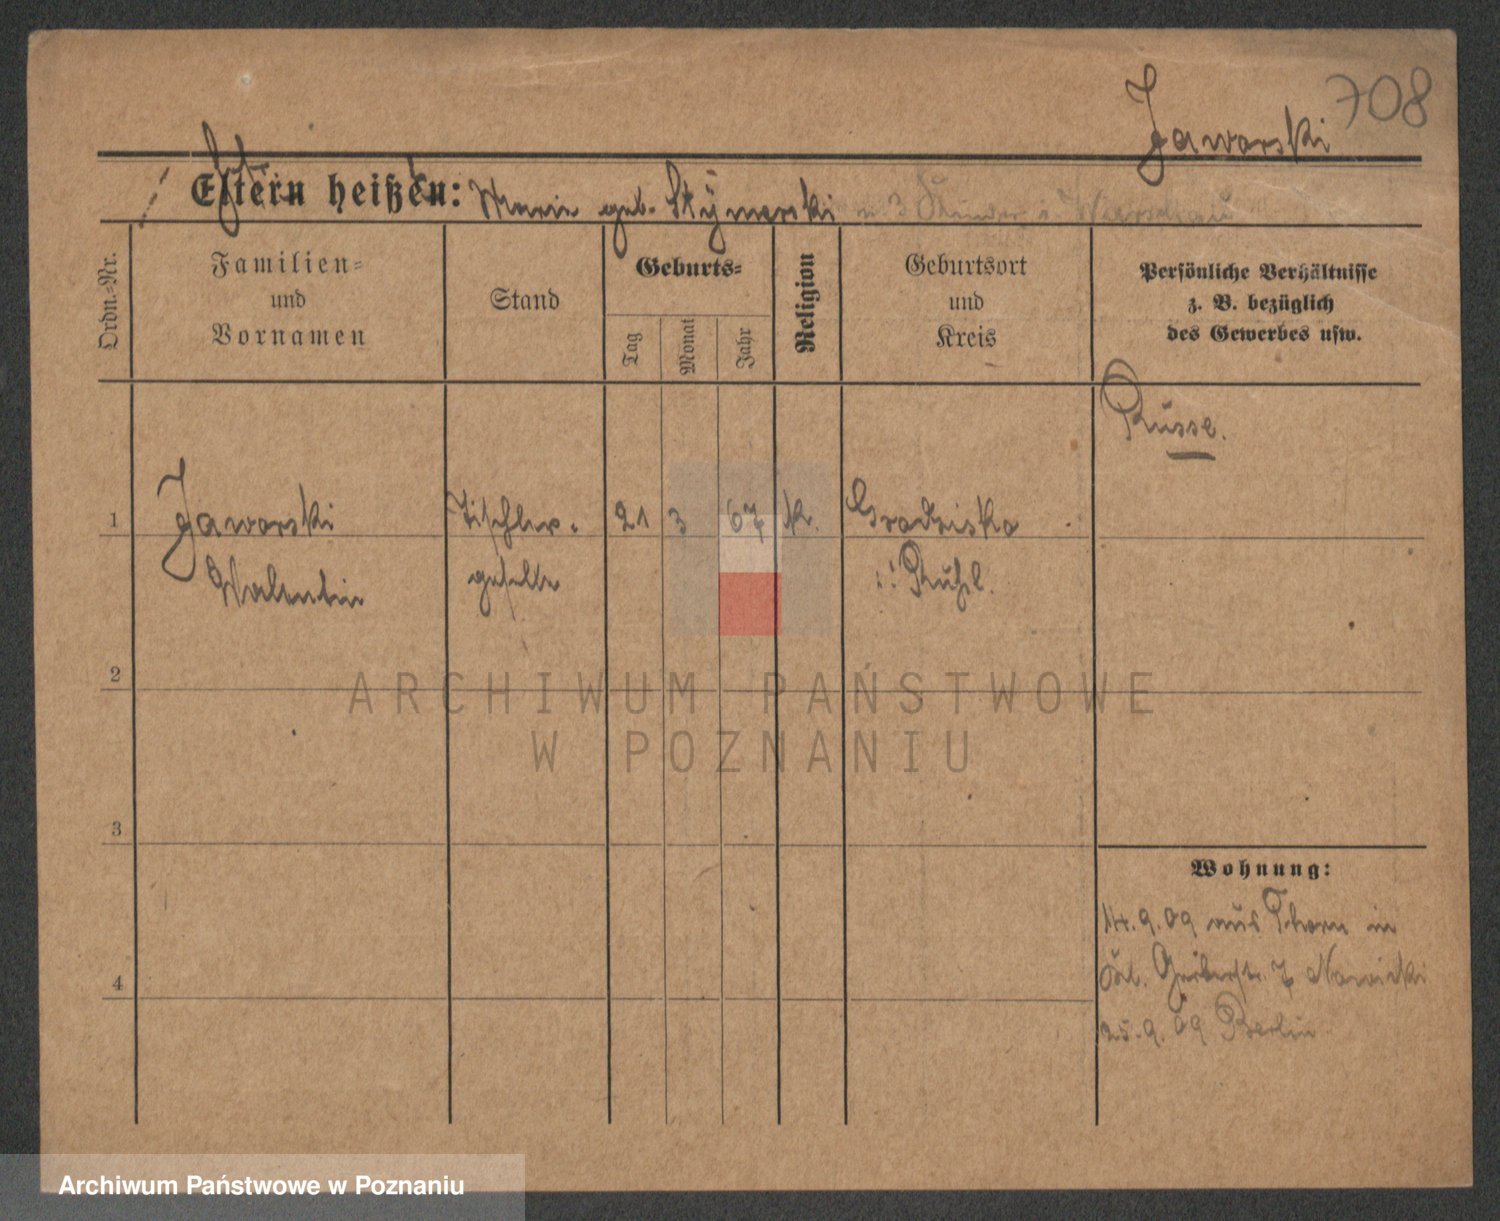 708
Jaworski
Eltern heißen: Marie geb. Szymorski u 3 Kinder i Warschau
Ordn.-Nr.
Familien-
und
Vornamen
Stand
Geburts-
Tag
Monat
Jahr
Religion
Geburtsort
und
Kreis
Persönliche Verhältnisse
z. B. bezüglich
des Gewerbes usw.
Russe.
1
Jaworski
Valentin
Tischler-
geselle
21
3
67
k.
Grodzisko
i. Rußl.
2
3
4
Wohnung:
14.9.09 aus Thorn in
7 Nowicki
25.9.09 Berlin
ARCHIWUM PAŃSTWOWE
W POZNANIU
Archiwum Państwowe w Poznaniu